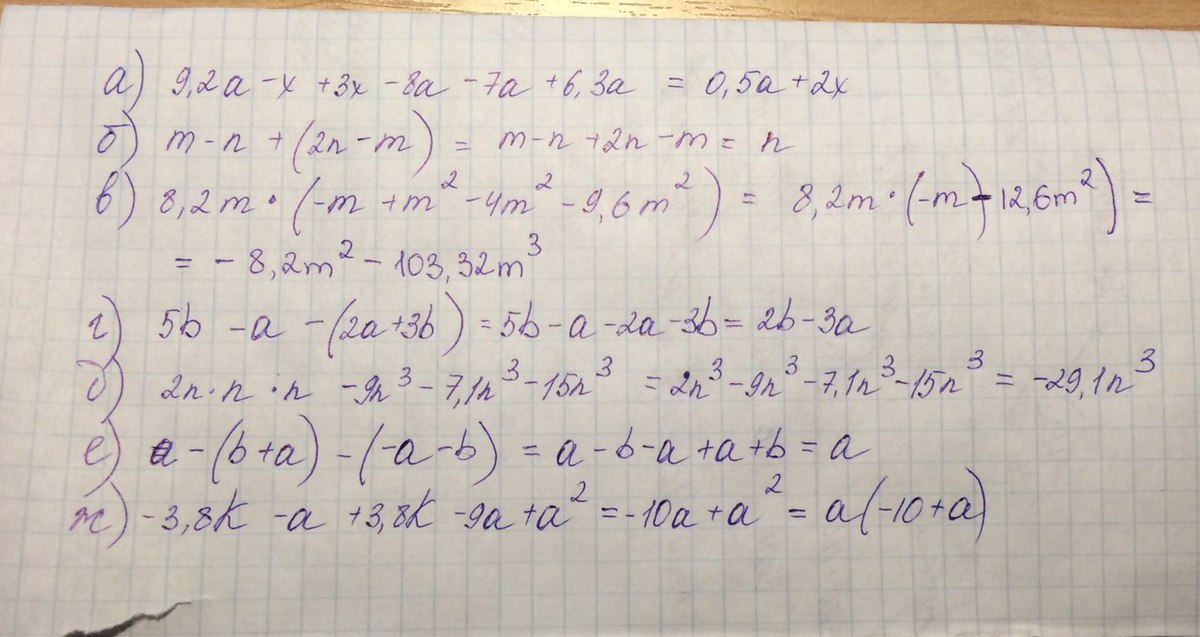 а) 9,2a - x + 3x - 8a - 7a + 6,3a = 0,5a + 2x
б) m - n + (2n - m) = m - n + 2n - m = n
в) 8,2m · (-m + m² - 4m² - 9,6m²) = 8,2m · (-m - 12,6m²) =
= - 8,2m² - 103,32m³
г) 5b - a - (2a + 3b) = 5b - a - 2a - 3b = 2b - 3a
д) 2n · n · n - 9n³ - 7,1n³ - 15n³ = 2n³ - 9n³ - 7,1n³ - 15n³ = -29,1n³
е) a - (b + a) - (-a - b) = a - b - a + a + b = a
ж) -3,8k - a + 3,8k - 9a + a² = -10a + a² = a(-10 + a)